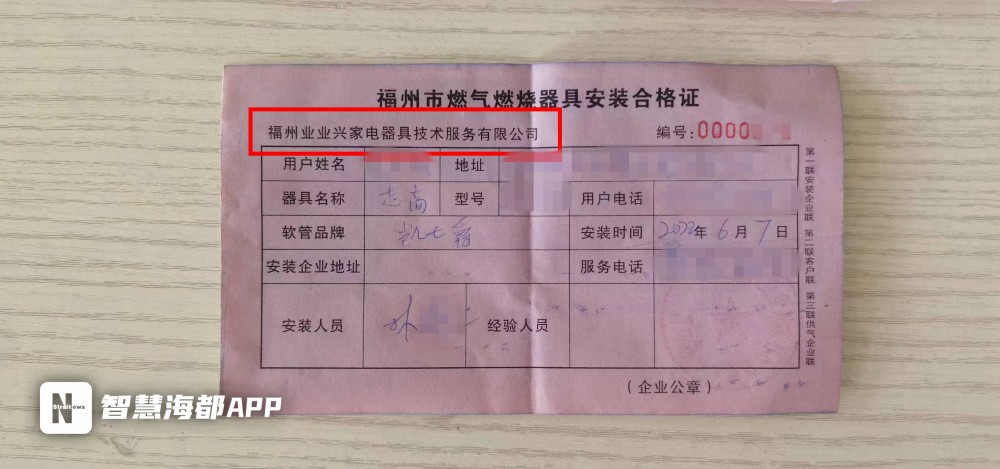 福州市燃气燃烧器具安装合格证
福州业业兴家电器具技术服务有限公司
编号:0000
用户姓名 地址
器具名称 型号 用户电话
软管品牌 安装时间 2022年6月7日
安装企业地址 服务电话
安装人员 经验人员
(企业公章)
第一联安装企业联 第二联客户联 第三联供气企业联
N
Straitnews
智慧海都APP